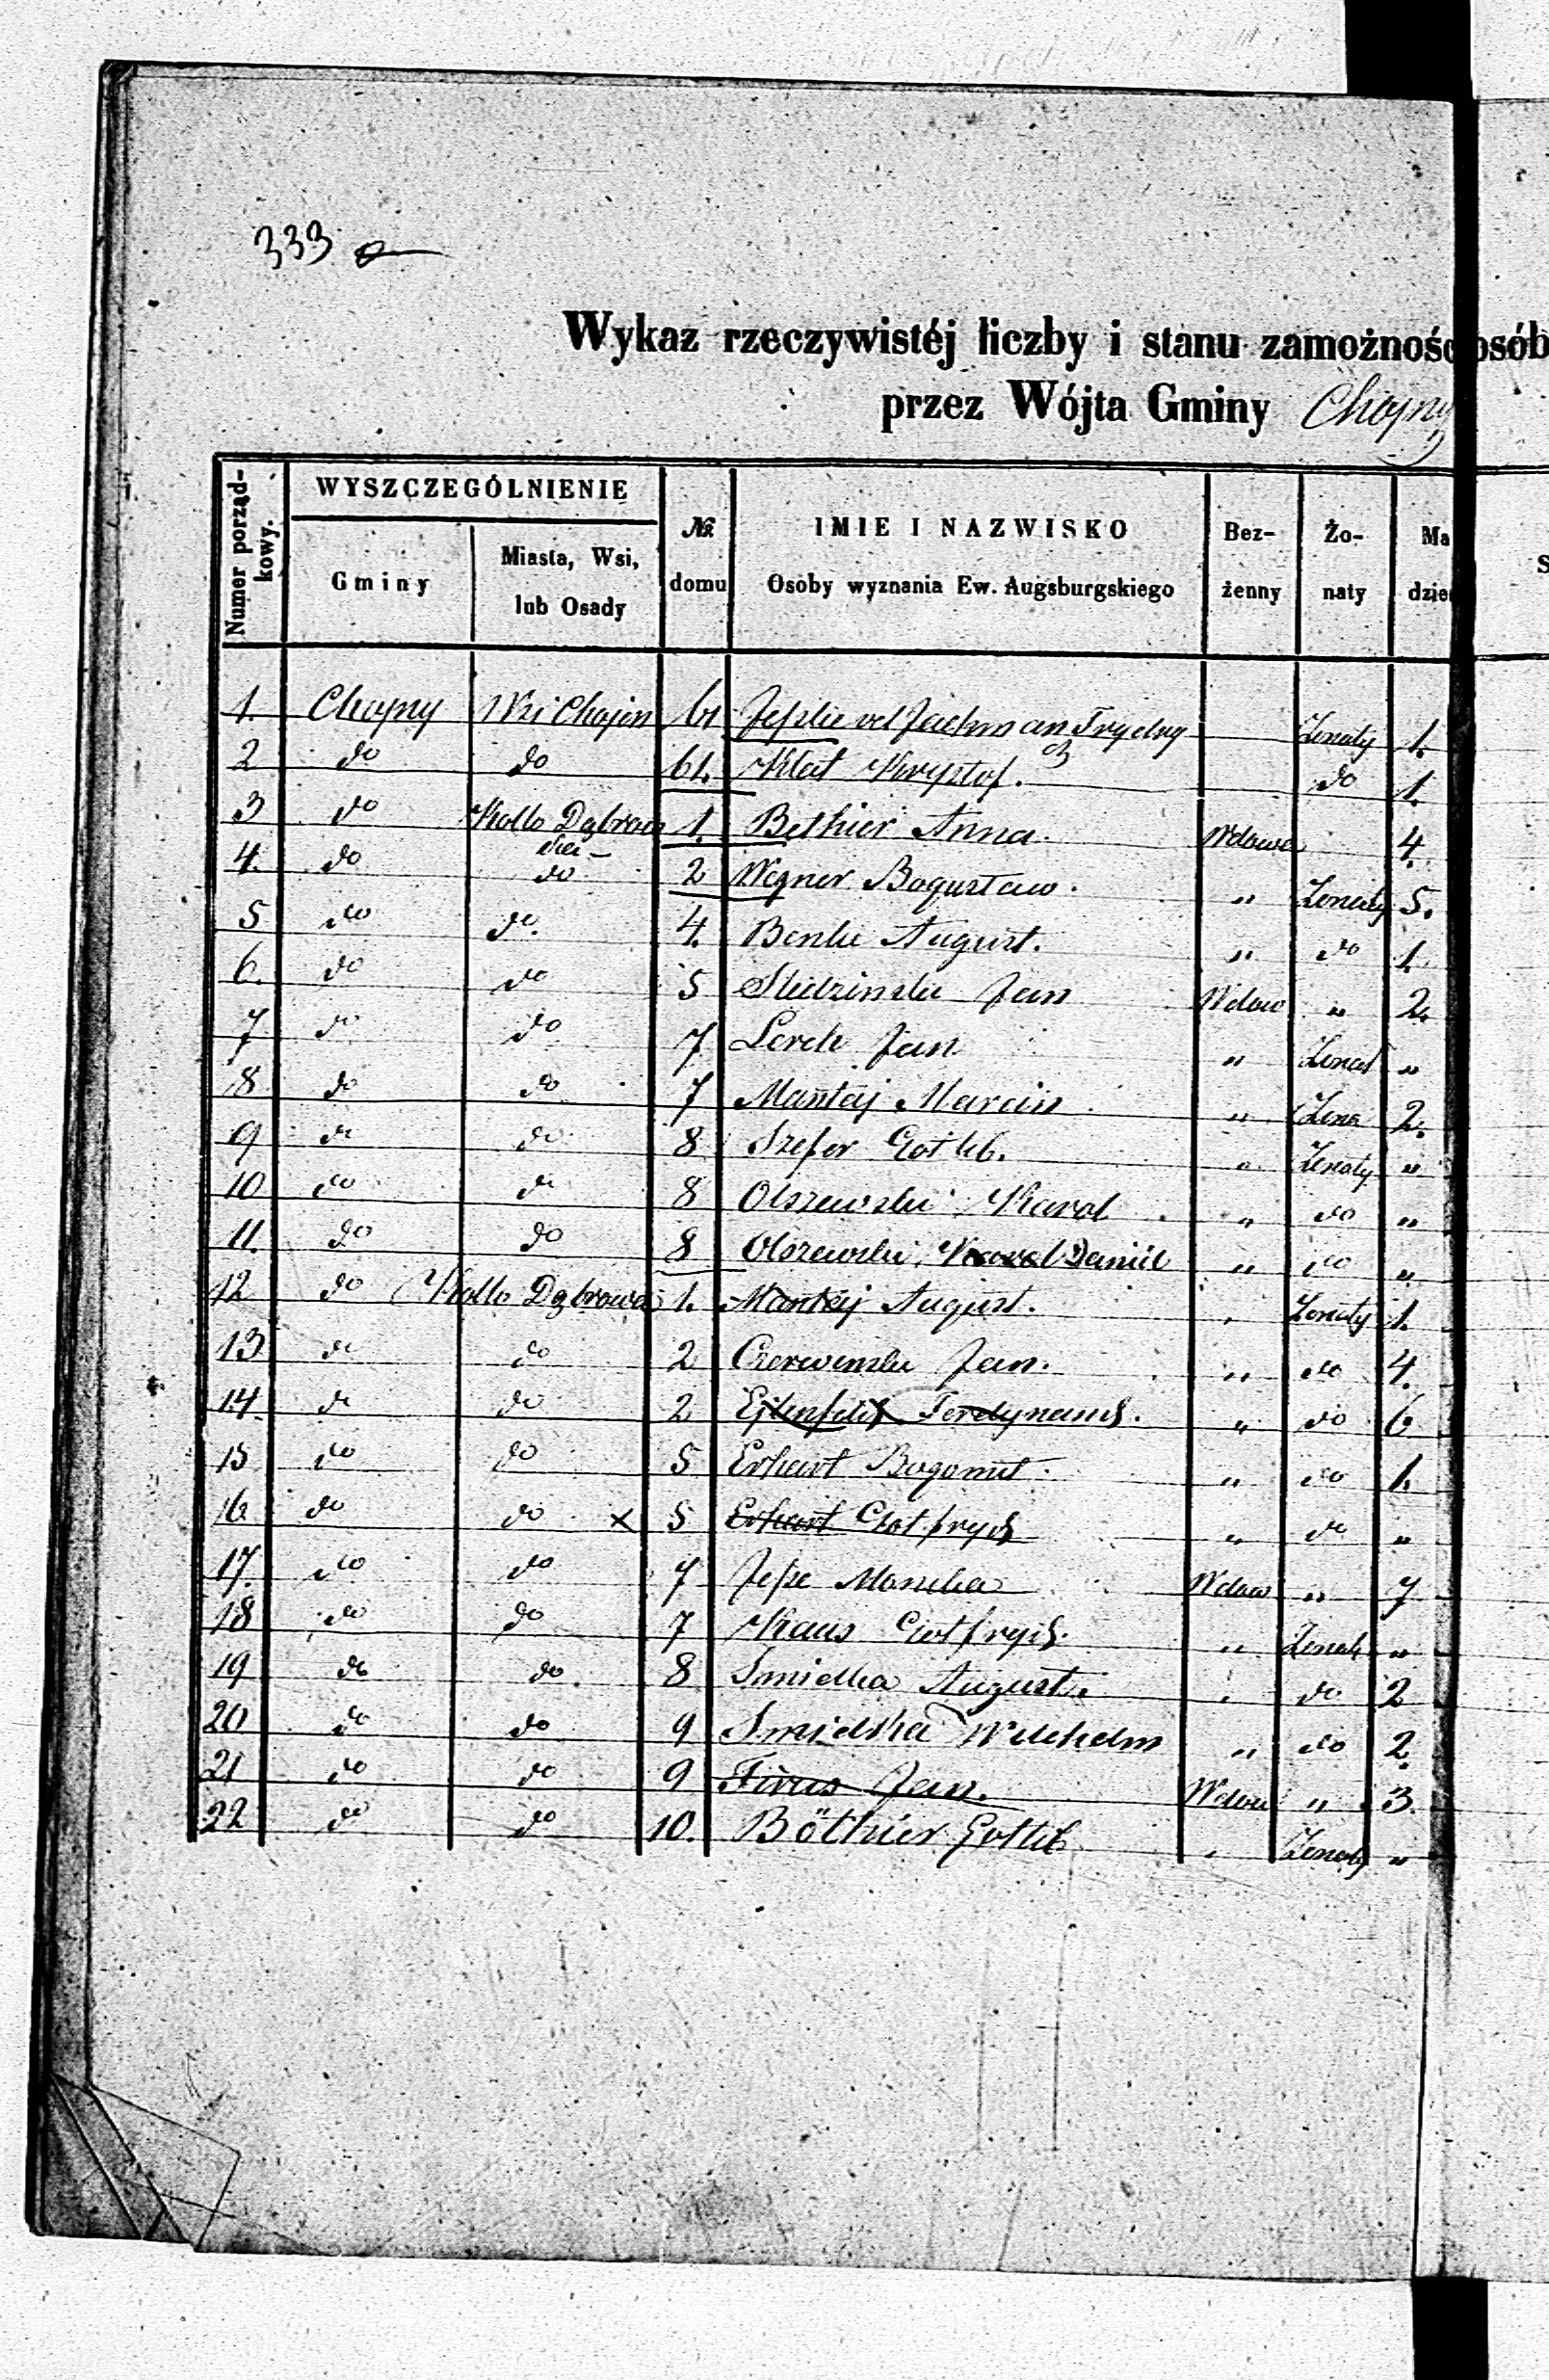 333
Wykaz rzeczywistéj liczby i stanu zamożnośc osób
przez Wójta Gminy Chojny
Numer porząd-
kowy.
WYSZCZEGÓLNIENIE
Gminy
Miasta, Wsi,
lub Osady
№
domu
IMIE I NAZWISKO
Osoby wyznania Ew. Augsburgskiego
Bez-
żenny
Żo-
naty
Ma
dzie
S
1. Chojny Wsi Chojen 61 vel Fryderyk Żonaty 1.
2 do do 61. Klat Krysztof. do 1.
3 do Kollo Dąbrow 1. Bethier Anna. Wdowa 4.
4. do do 2 Wegner Bogusław. " Żonaty 5.
5 do do. 4. Benke August. " do 1.
6. do do 5 Sledzinski Jan Wdow " 2.
7 do do 7 Lerch Jan " Żonat "
8 do do 7 Mantaj Marcin " Żona 2.
9 do do 8 Szefer Gotlib. " Żonaty "
10 do do 8 Olszewski Karol " do "
11. do do 8 Olszewski Karol Daniel " do "
12 do Kollo Dąbrowa 1. Mantaj August. " Żonaty 1.
13 do do 2 Czerwinski Jan. " do 4.
14 do do 2 Ferdynand. " do 6
15 do do 5 Erhart Bogomił. " do 1.
16. do do x 5 Erhart Gotfryd " do "
17. do do 7 Wdow " 7
18 do do 7 Kraus Gotfryd. " Żonaty "
19 do do. 8 Smidka August. " do 2
20 do do 9 Smidka Wilchelm " do 2.
21 do do 9 Firus Jan. Wdow " 3.
22 do do 10. Böthier Gottlib " Żonaty "